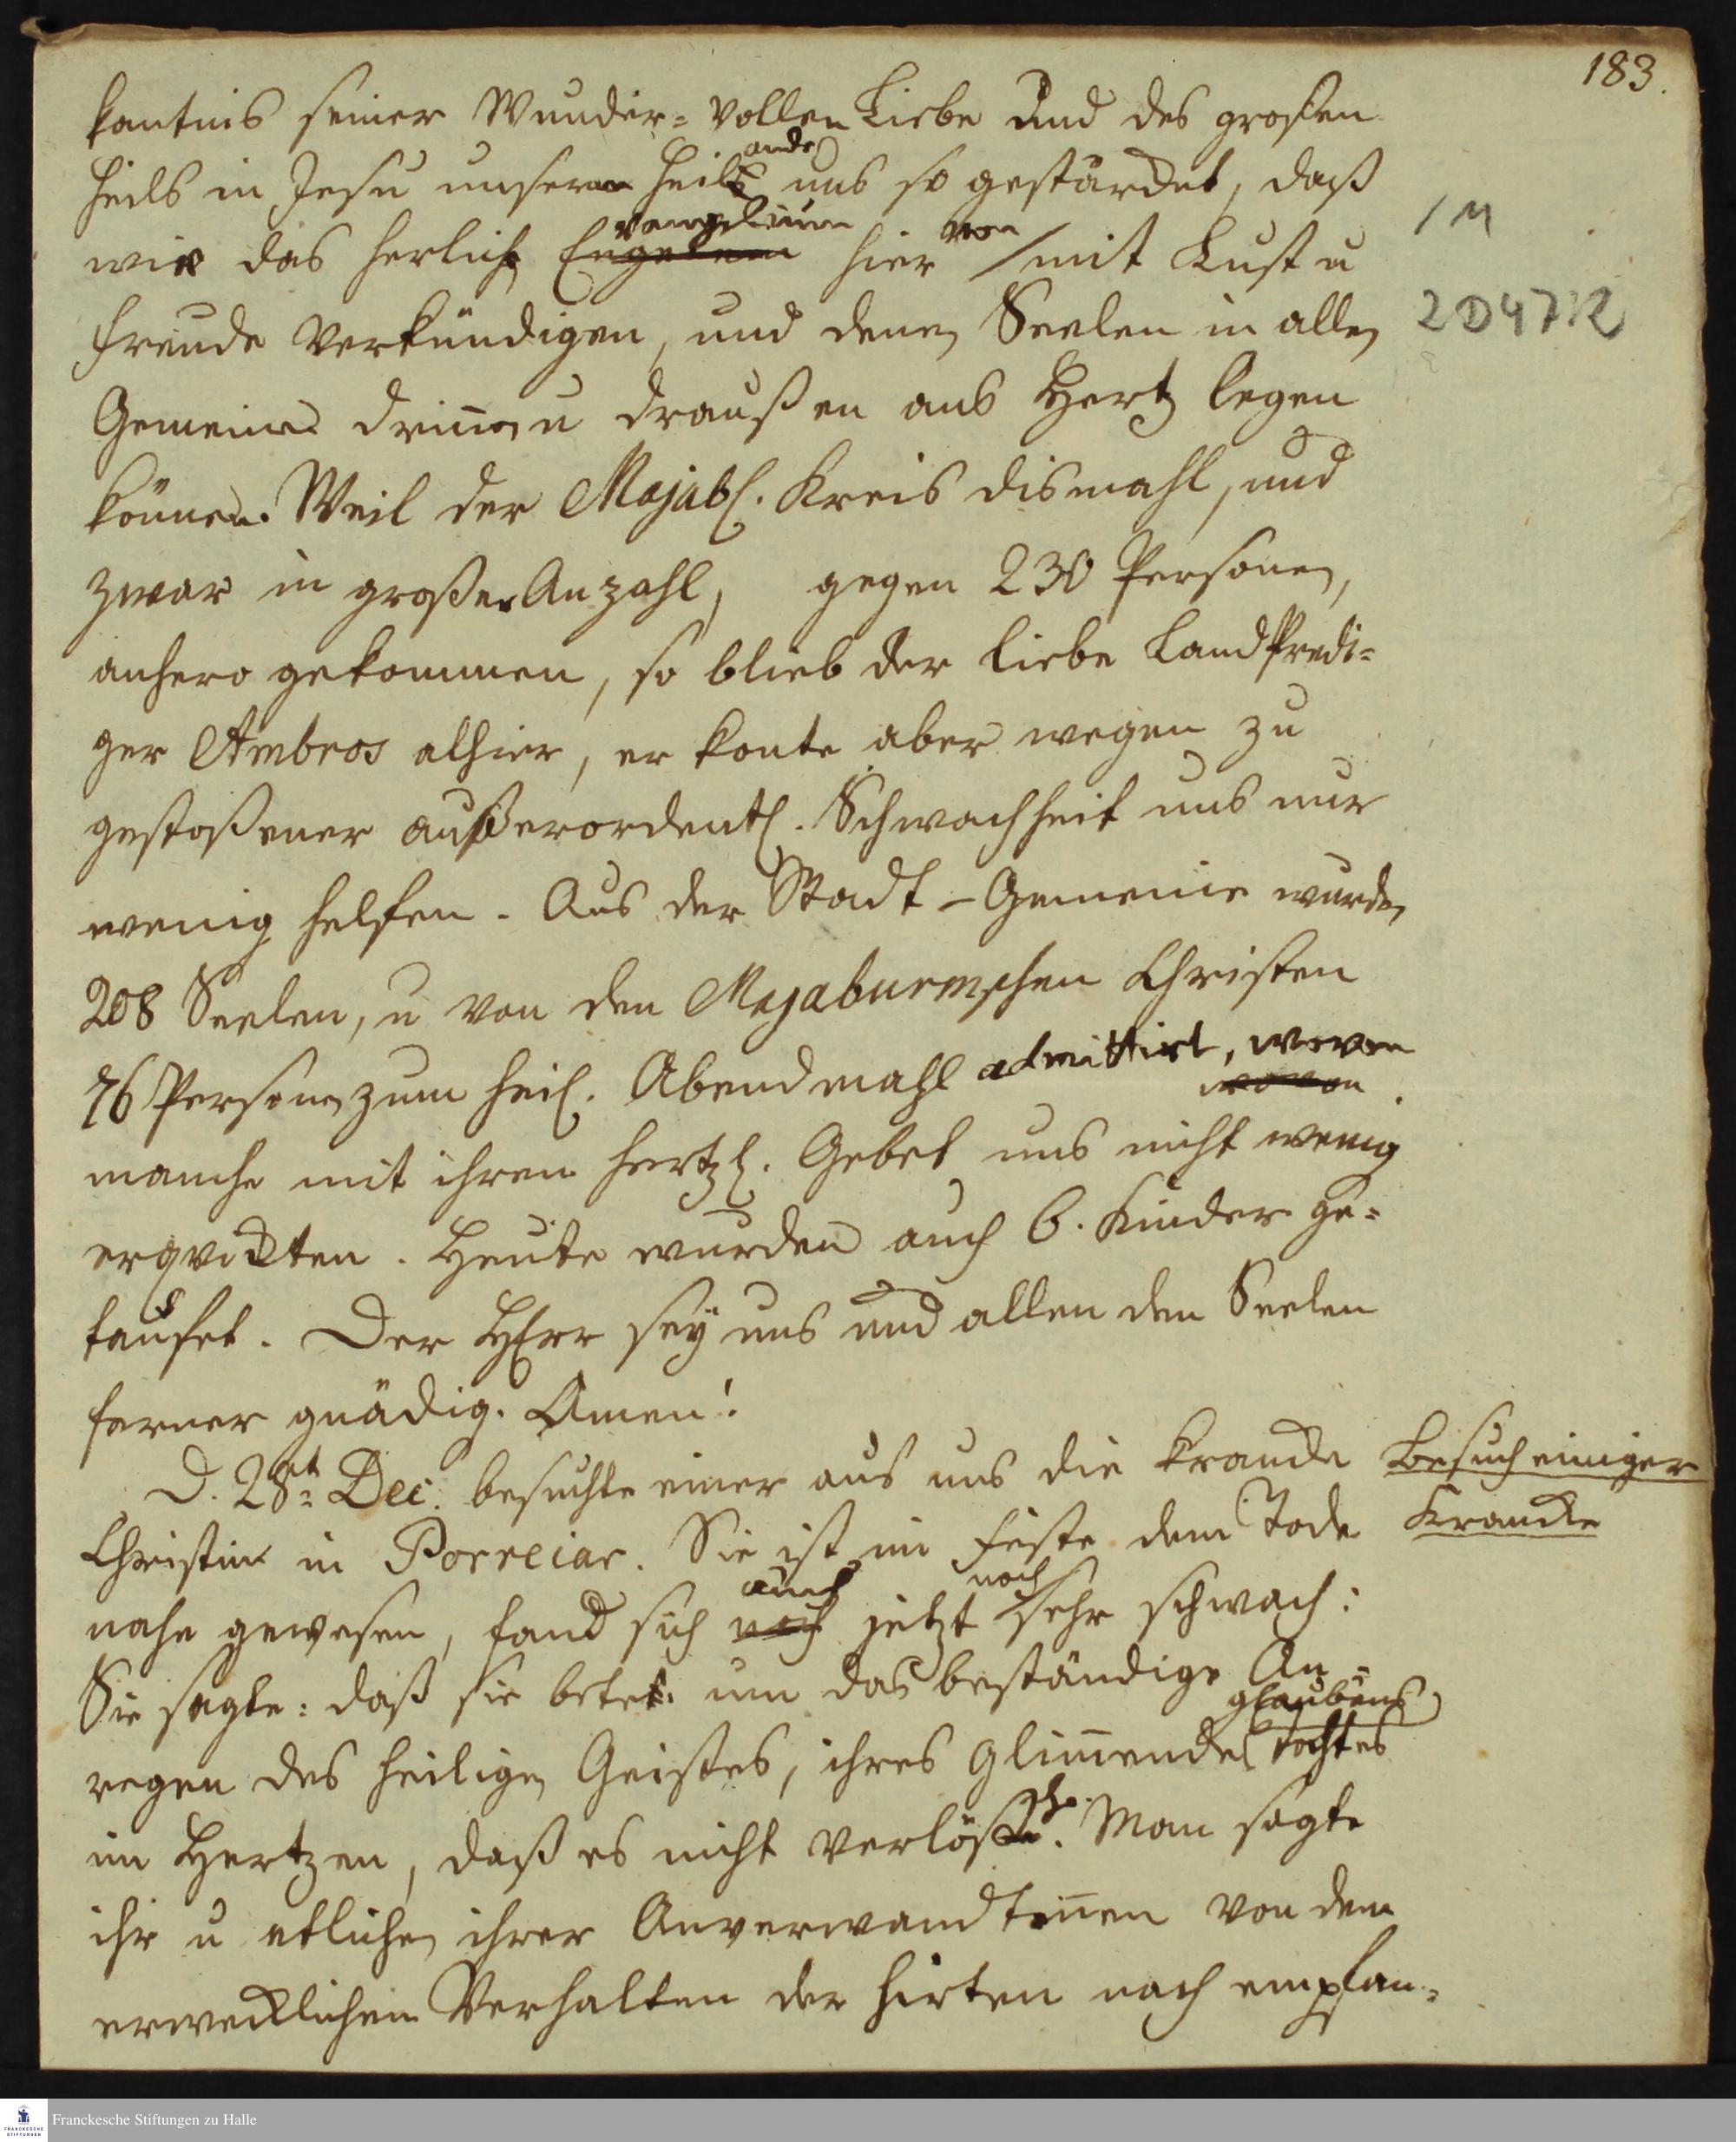 183.
kantnis seiner Wunder=vollen Liebe und des großen
Heils in Jesu unserm Heilande uns so gestärcket, daß
wir das herliche Evangelium hiervon mit Lust u
Freude verkündigen, und denen Seelen in allen
Gemeinen drinnen u draußen ans Hertz legen
können. Weil der Majab. Kreis dismahl, und
zwar in großer Anzahl, gegen 230 Personen,
anhero gekommen, so blieb der liebe Landpredi=
ger Ambros alhier, er konte aber wegen zu
gestoßener außerordentl. Schwachheit uns nur
wenig helfen. Aus der Stadt-Gemeine wurden
208 Seelen, u von den Majaburmschen Christen
76 Personen zum heil. Abendmahl admittirt, wovon
manche mit ihren hertzl. Gebet uns nicht wenig
erqvickten. Heute wurden auch 6. Kinder ge=
taufet. Der HErr sey uns und allen den Seelen
ferner gnädig. Amen!
D. 28t Dec. besuchte einer aus uns die krancke
Christin in Porreiar. Sie ist im Feste dem Tode
nahe gewesen, fand sich auch jetzt noch sehr schwach:
Sie sagte: daß sie bete um das beständige An=
regen des heiligen Geistes, ihres glimmendes Glaubens tochtes
im Hertzen, daß es nicht verlösche. Man sagte
ihr u etlichen ihrer Anverwandtinnen von dem
erwecklichen Verhalten der Hirten nach empfan=
Besuch einiger
Krancke
/ M
2 D 47:2
Franckesche Stiftungen zu Halle